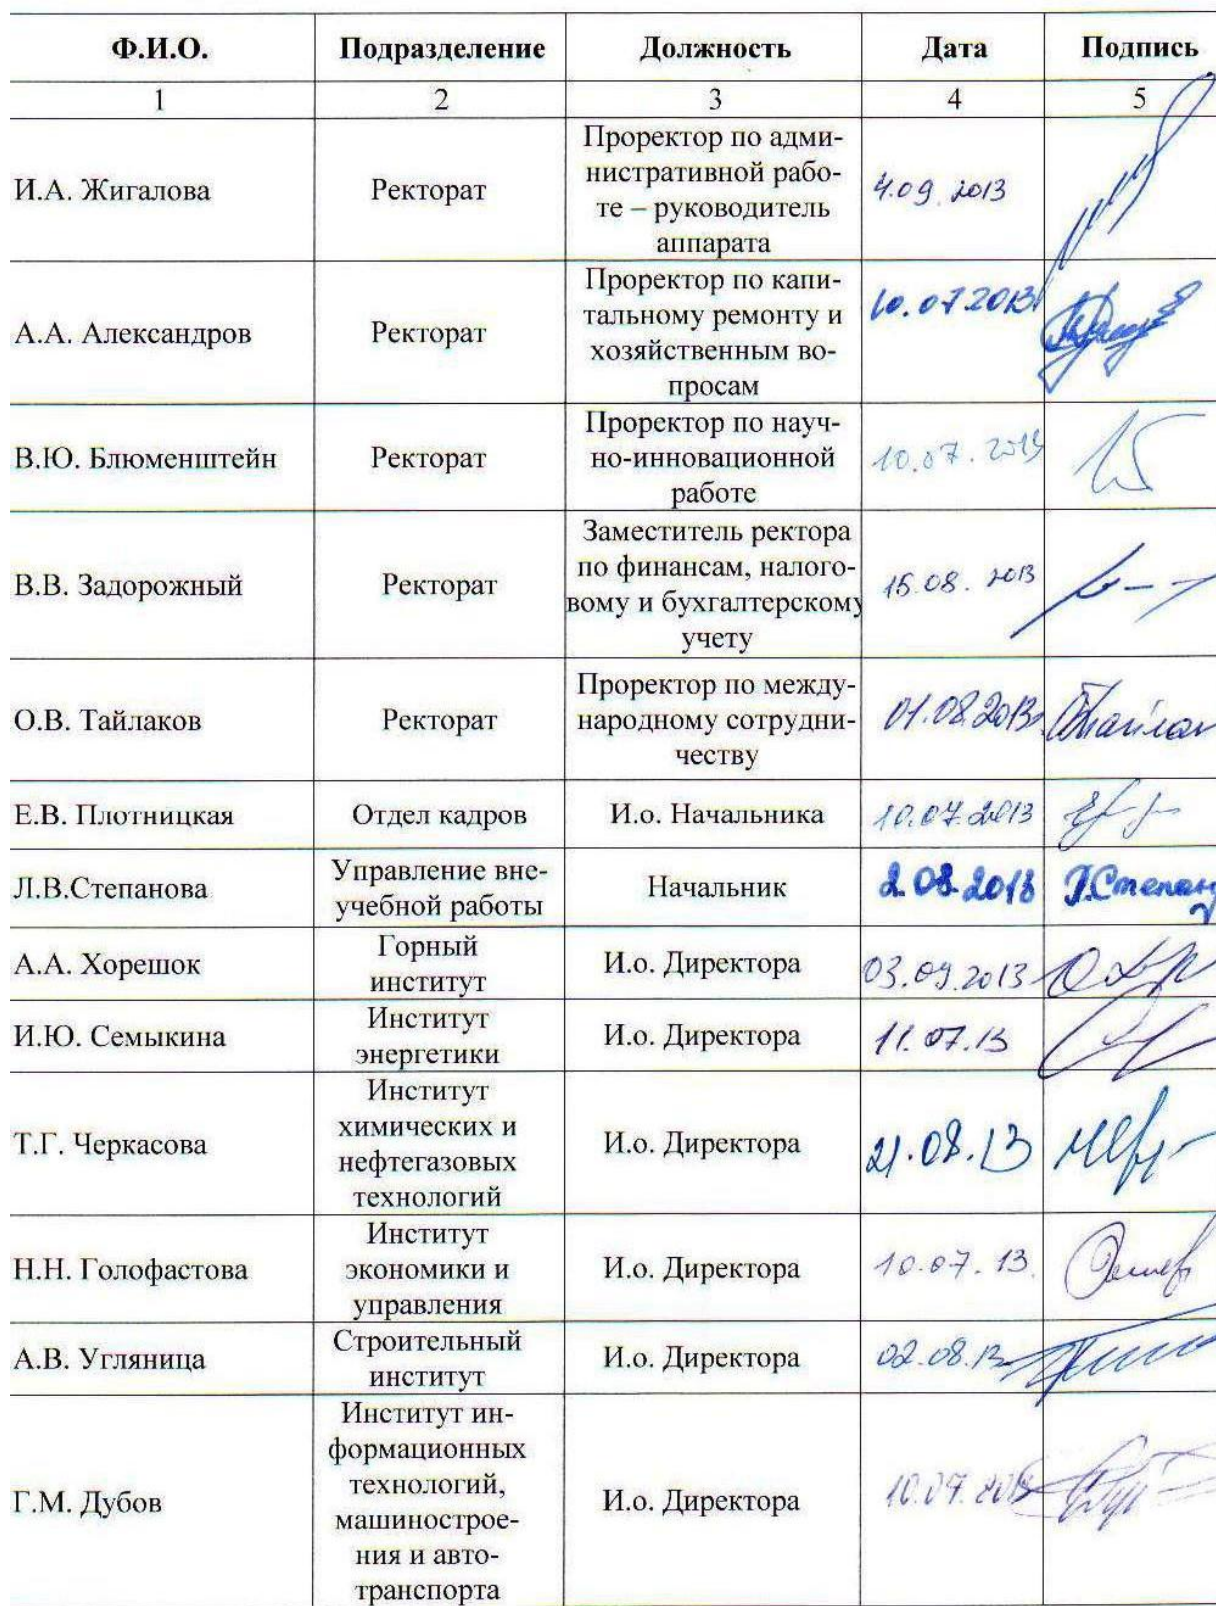 Ф.И.О. Подразделение Должность Дата Подпись
1 2 3 4 5
И.А. Жигалова Ректорат Проректор по адми-
нистративной рабо-
те – руководитель
аппарата 4.09.2013
А.А. Александров Ректорат Проректор по капи-
тальному ремонту и
хозяйственным во-
просам 10.07.2013
В.Ю. Блюменштейн Ректорат Проректор по науч-
но-инновационной
работе 10.07.2013
В.В. Задорожный Ректорат Заместитель ректора
по финансам, налого-
вому и бухгалтерскому
учету 15.08.2013
О.В. Тайлаков Ректорат Проректор по между-
народному сотрудни-
честву 01.08.2013
Е.В. Плотницкая Отдел кадров И.о. Начальника 10.07.2013
Л.В.Степанова Управление вне-
учебной работы Начальник 2.08.2013
А.А. Хорешок Горный
институт И.о. Директора 03.09.2013
И.Ю. Семыкина Институт
энергетики И.о. Директора 11.07.13
Т.Г. Черкасова Институт
химических и
нефтегазовых
технологий И.о. Директора 21.08.13
Н.Н. Голофастова Институт
экономики и
управления И.о. Директора 10.07.13.
А.В. Угляница Строительный
институт И.о. Директора 02.08.13
Г.М. Дубов Институт ин-
формационных
технологий,
машинострое-
ния и авто-
транспорта И.о. Директора 10.07.2013